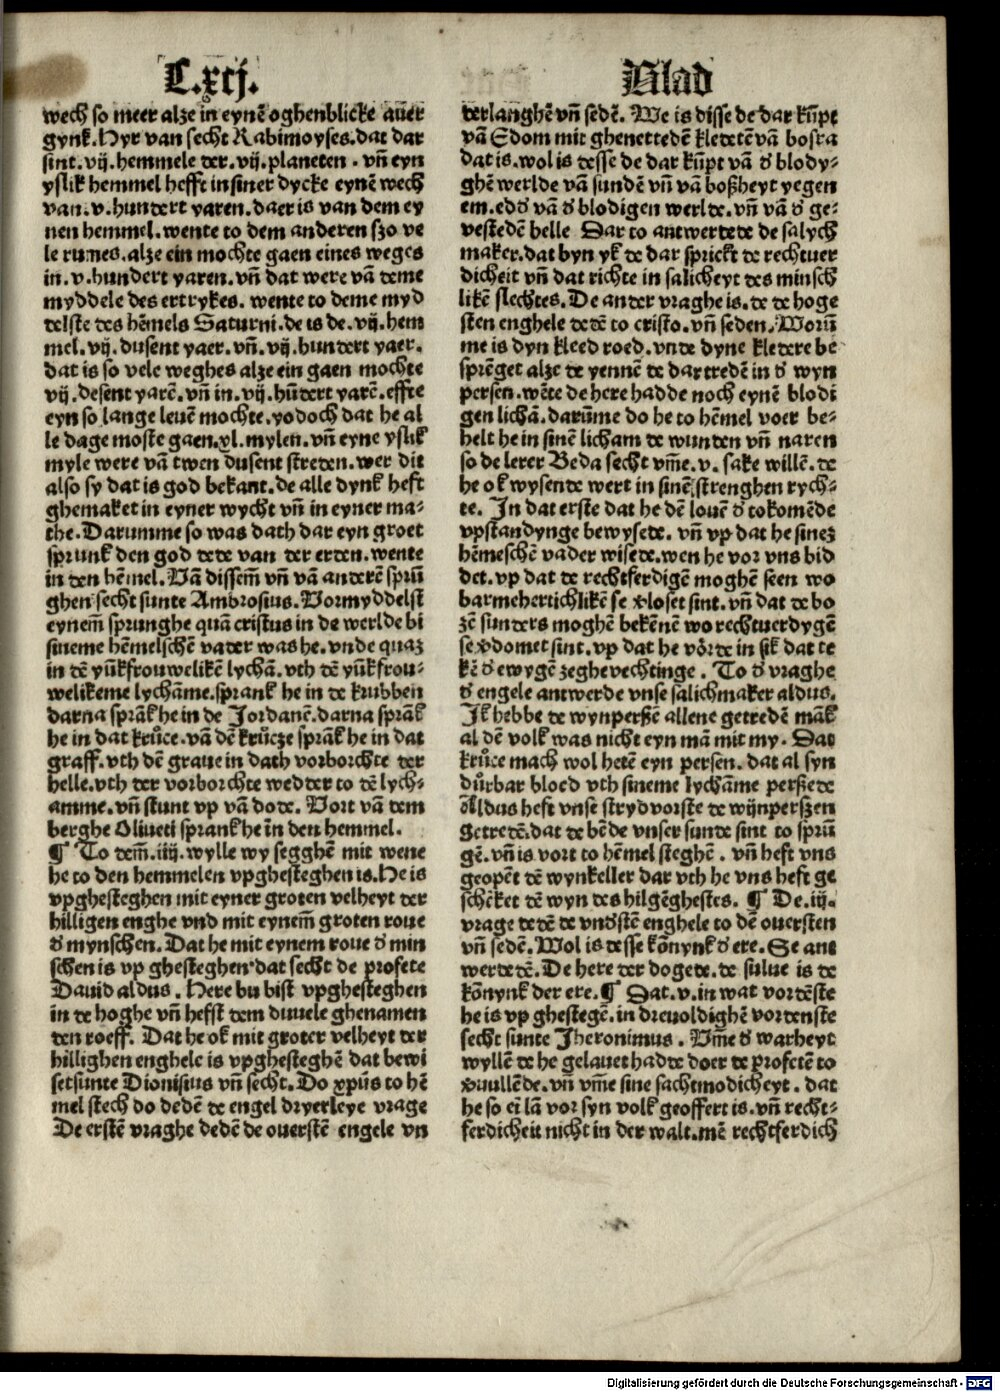 C.xcj.
Blad
wech so meer alze in eynē oghenblicke auer
gynk. Hyr van secht Rabimoyses. dat dar
sint. vij. hemmele der. vij. planeten. vn̄ eyn
yslik hemmel hefft in siner dycke eynē wech
van. v. hundert yaren. daer is van dem ey
nen hemmel. wente to dem anderen szo ve
le rumes. alze ein mochte gaen eines weges
in. v. hundert yaren. vn̄ dat were vā deme
myddele des ertrykes. wente to deme myd
delste des hēmels Saturni. de is de. vij. hem
mel. vij. dusent yaer. vn̄. vij. hundert yaer.
dat is so vele weghes alze ein gaen mochte
vij. desent yarē. vn̄ in. vij. hūdert yarē. effte
eyn so lange leuē mochte. yodoch dat he al
le dage moste gaen. xl. mylen. vn̄ eyne yslik
myle were vā twen dusent streden. wer dit
also sy dat is god bekant. de alle dynk heft
ghemaket in eyner wycht vn̄ in eyner ma-
the. Darumme so was dath dar eyn groet
sprunk den god dede van der erden. wente
in den hēmel. Vā dissem̄ vn̄ vā anderē sprū
ghen secht sunte Ambrosius. Vormyddelst
eynem̄ sprunghe quā cristus in de werlde bi
sineme hēmelschē vader was he. vnde quaz
in dē yūkfrouwelikē lychā. vth dē yūkfrou-
welikeme lychāme. sprank he in de krubben
darna sprāk he in de Jordanē. darna sprāk
he in dat krůce. vā dē krůcze sprāk he in dat
graff. vth dē graue in dath vorborchte der
helle. vth der vorborchte wedder to dē lych-
amme. vn̄ stunt vp vā dode. Vort vā dem
berghe Oliueti sprank he in den hemmel.
¶ To dem̄. iiij. wylle wy segghē mit wene
he to den hemmelen vpghesteghen is. He is
vpghesteghen mit eyner groten velheyt der
hilligen enghe vnd mit eynem̄ groten roue
d̕ mynschen. Dat he mit eynem roue d̕ min
schen is vp ghesteghen dat secht de profete
Dauid aldus. Here bu bist vpghesteghen
in de hoghe vn̄ hefst dem duuele ghenamen
den roeff. Dat he ok mit groter velheyt der
hillighen enghele is vpghesteghē dat bewi
set sunte Dionisius vn̄ secht. Do xp̄us to hē
mel stech do dedē de engel dryerleye vrage
De erstē vraghe dedē de ouerstē engele vn
verlanghē vn̄ sedē. We is disse de dar kūpt
vā Edom mit ghenettedē kledetē vā bosra
dat is. wol is desse de dar kūpt vā d̕ blody-
ghē werlde vā sundē vn̄ vā boßheyt yegen
em. ed̕ vā d̕ blodigen werlde. vn̄ vā d̕ ge-
vestedē helle Dar to antwertede de salych
maker. dat byn yk de dar sprickt de rechtuer
dicheit vn̄ dat richte in salicheyt des minsch
likē slechtes. De ander vraghe is. de de hoge
sten enghele dedē to cristo. vn̄ seden. Worū
me is dyn kleed roed. vnde dyne kledere be
sprēget alze de yennē de dar tredē in d̕ wyn
persen. wēte de here hadde noch eynē blodi
gen lichā. darūme do he to hēmel voer be-
helt he in sinē licham de wunden vn̄ naren
so de lerer Beda secht vm̄e. v. sake willē. de
he ok wysende wert in sinē strenghen rych-
te. In dat erste dat he dē louē d̕ tokomēde
vpstandynge bewysede. vn̄ vp dat he sinez
hēmeschē vader wisede. wen he vor vns bid
det. vp dat de rechtferdigē moghē seen wo
barmehertichlikē se vloset sint. vn̄ dat de bo
zē sunders moghē bekēnē wo rechtuerdygē
se vdomet sint. vp dat he vȫrde in sik dat te
kē d̕ ewygē zeghevechtinge. To d̕ vraghe
d̕ engele antwerde vnse salichmaker aldus.
Jk hebbe de wynperßē allene getredē māk
al dē volk was nicht eyn mā mit my. Dat
krůce mach wol hetē eyn persen. dat al syn
důrbar bloed vth sineme lychāme perßede
Aldus heft vnse strydvorste de wijnperßen
getredē. dat de bēde vnser sunde sint to sprū
gē. vn̄ is vort to hēmel steghē. vn̄ heft vns
geopēt dē wynkeller dar vth he vns heft ge
schēket dē wyn des hilgēghestes. ¶ De. iij.
vrage dedē de vnd̕stē enghele to dē ouersten
vn̄ sedē. Wol is desse kȫnynk d̕ ere. Se ant
werdedē. De here der dogede. de sulue is de
kȫnynk der ere. ¶ Dat. v. in wat vordēste
he is vp ghestegē. in dreuoldighē vordenste
secht sunte Jheronimus. Vm̄e d̕ warheyt
wyllē de he gelauet hadde doer de profetē to
vuullēde. vn̄ vm̄e sine sachtmodicheyt. dat
he so eī lā vor syn volk geoffert is. vn̄ recht-
ferdicheit nicht in der walt. mē rechtferdich
Digitalisierung gefördert durch die Deutsche Forschungsgemeinschaft - DFG